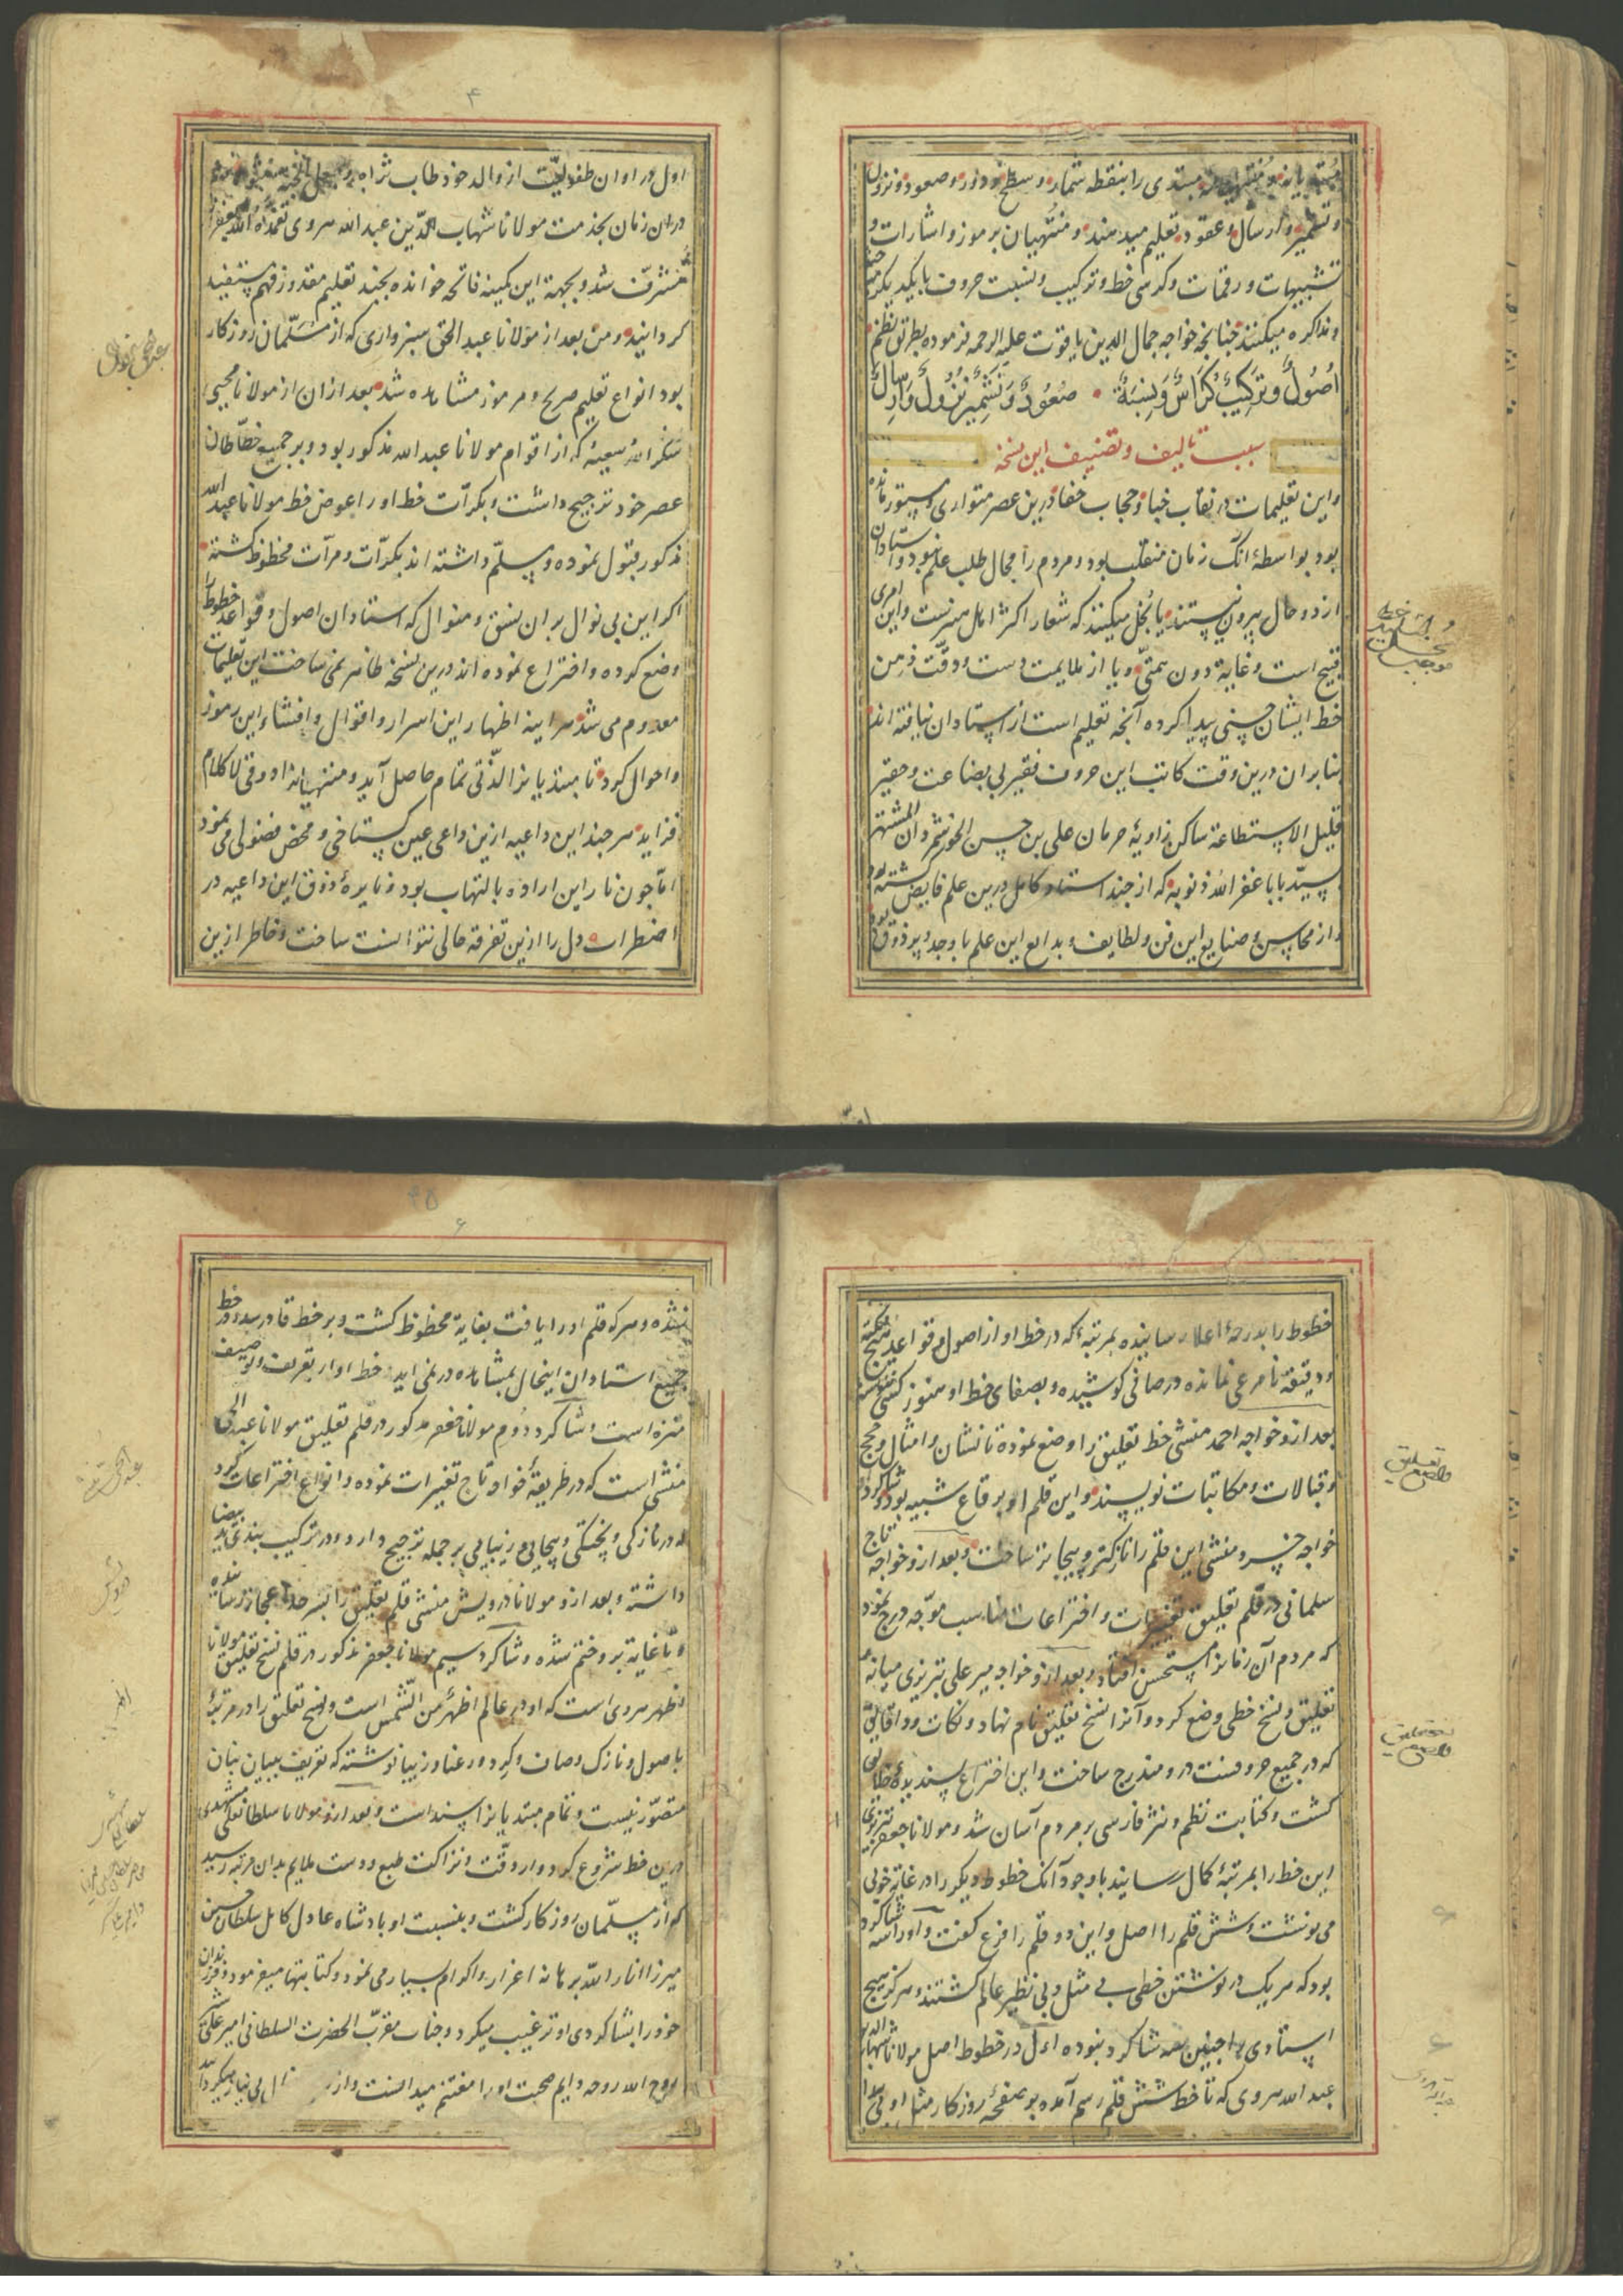 مبتدی را بنقطه شمار و سطح و دور و صعود و نزول
و تشمیر و ارسال و عقود تعلیم میدهند و منتهیان برموز و اشارات و
تشبیهات و رقمات و کرسی خط و ترکیب و نسبت حروف با یکدیگر
و مذاکره میکنند چنانچه خواجه جمال الدین یاقوت علیه الرحمه فرموده بطریق نظم
اُصُولٌ وَ تَرکیبٌ کُرَاسٌ وَ نِسبَةٌ • صُعُودٌ وَ تَشمِیرٌ نُزُولٌ وَ اِرسَالٌ
سبب تالیف و تصنیف این نسخه
و این تعلیمات در نقاب خبا و حجاب خفا درین عصر متواری و مستور مانده
بود بواسطهٔ انک زمان منقلب بود و مردم را مجال طلب علم نبود و استادان
از دو حال بیرون نیستند یا بُخل میکنند که شعار اکثر اهل هنرست و این امری
قبیح است و غایة دون همتی و یا از ملایمت دست و دقت ذهن
خط ایشان حسنی پیدا کرده آنچه تعلیم است از استادان نیافته اند
بنابران درین وقت کاتب این حروف فقیر بی بضاعت و حقیر
قلیل الاستطاعة ساکن زاویهٔ حرمان علی بن حسن الخوشمردان المشتهر
بسید بابا غفر الله ذنوبه که از چند استاد کامل درین علم فایض شته بود
و از محاسن و صنایع این فن و لطایف و بدایع این علم با وجد و پر ذوق بود
و اساتید خط
بخل
موجب
۴
اول در اوان طفولیت از والد خود طاب ثراه
دران زمان بخدمت مولانا شهاب الدین عبد الله هروی تغمده الله بغفرانه
مشرف شد و بجهة این کمینه فاتحه خوانده بچند تعلیم مقدور فهم مستفید
کردانید و من بعد از مولانا عبد الحق سبزواری که از مسلمان روزکار
بود انواع تعلیم صریح و مرموز مشاهده شد بعد ازان از مولانا محیی
شکر الله سعیه که از اقوام مولانا عبد الله مذکور بود و بر جمیع خطاطان
عصر خود ترجیح داشت و بکرات خط او را عوض خط مولانا عبد الله
مذکور قبول نموده و مسلم داشته اند بکرات و مرات محظوظ کشته
اکر این بی نوال بران نسق و منوال که استادان اصول و قواعد خطوط
وضع کرده و اختراع نموده اند درین نسخه ظاهر نمی ساخت این تعلیمات
معدوم می شد هر اینه اظهار این اسرار و اقوال و افشاء این رموز
و احوال کرد تا مبتدیانرا لذتی تمام حاصل آید و منتهیانرا ذوقی لا کلام
فزاید هر چند این داعیه ازین داعی عین کستاخی و محض فضولی می نمود
اما چون نار این اراده بالتهاب بود و نایرهٔ ذوق این داعیه در
اضطراب دل را ازین تفرقه خالی نتوانست ساخت و خاطر ازین
خطوط را بدرجهٔ اعلا رسانیده بمرتبهٔ که در خط او از اصول و قواعد هیچ نکته
و دقیقه نامرعی نمانده در صافی کوشیده و بصفای خط او هنوز کسی ننوشته
بعد ازو خواجه احمد منشی خط تعلیق را وضع نموده تا نشان و امثال و حجج
و قبالات و مکاتبات نویسند و این قلم او برقاع شبیه بود و شاکرد
خواجه خسرو منشی این قلم را نازکتر و پیچانتر ساخت و بعد ازو خواجه تاج
سلمانی در قلم تعلیق تغییرات و اختراعات مناسب موجه درج نمود
که مردم آن زمانرا مستحسن افتاد و بعد ازو خواجه میر علی تبریزی میانهٔ
تعلیق و نسخ خطی وضع کرد و آنرا نسخ تعلیق نام نهاد و نکات و دقایق
که در جمیع حروفست درو مندرج ساخت و این اختراع پسندیدهٔ
کشت و کتابت نظم و نثر فارسی بر مردم آسان شد و مولانا جعفر تبریزی
این خط را بمرتبهٔ کمال رسانید با وجود آنک خطوط دیکر را در غایة خوبی
می نوشت و شش قلم را اصل و این دو قلم را فرع کفت و او را سه شاکرد
بود که هر یک در نوشتن خطی بی مثل و بی نظیر عالم کشتند و هرکز هیچ
استادی را چنین سه شاکرد نبوده اول در خطوط اصل مولانا شهاب الدین
عبد الله هروی که تا خط شش قلم رسم آمده بر صفحهٔ روزکار مثل او بی
واضع تعلیق
واضع نستعلیق
۶
نشده و هر که قلم او را یافت بغایة محظوظ کشت و بر خط قادر شد و خط
جمیع استادان اینحال بمشاهده در نمی اید خط او از تعریف و توصیف
منزه است و شاکرد دوم مولانا جعفر مذکور در قلم تعلیق مولانا عبد الحی
منشی است که در طریقهٔ خواجه تاج تغییرات نموده و انواع اختراعات کرد
که در نازکی و پختکی و پیچانی و زیبایی بر جمله ترجیح دارد و در ترکیب ید بیضا
داشته و بعد ازو مولانا درویش منشی قلم تعلیق را بسرحد اعجاز رسانیده
و تا غایة برو ختم شده و شاکرد سیم مولانا جعفر مذکور در قلم نسخ تعلیق مولانا
اظهر هروی است که او در عالم اظهر من الشمس است و نسخ تعلیق را در مرتبهٔ
باصول و نازک و صاف و کرد و رعنا و زیبا نوشته که تعریف ببیان بنان
متصور نیست و تمام مبتدیانرا سند است و بعد ازو مولانا سلطانعلی مشهدی
درین خط شروع کرد و از دقت و نزاکت طبع و دست ملایم بدان مرتبه رسید
که از مسلمان روزکار کشت و بنسبت او پادشاه عادل کامل سلطان حسین
میرزا انار الله برهانه اعزاز و اکرام بسیار می نمود و کتابتها میفرمود و فرزندان
خود را بشاکردی او ترغیب میکرد و جناب مقرب الحضرت السلطانی امیر علی شیر
روح الله روحه دایم صحبت او را مغتنم میدانست و از
عبد الحی منشی
درویش
اظهر